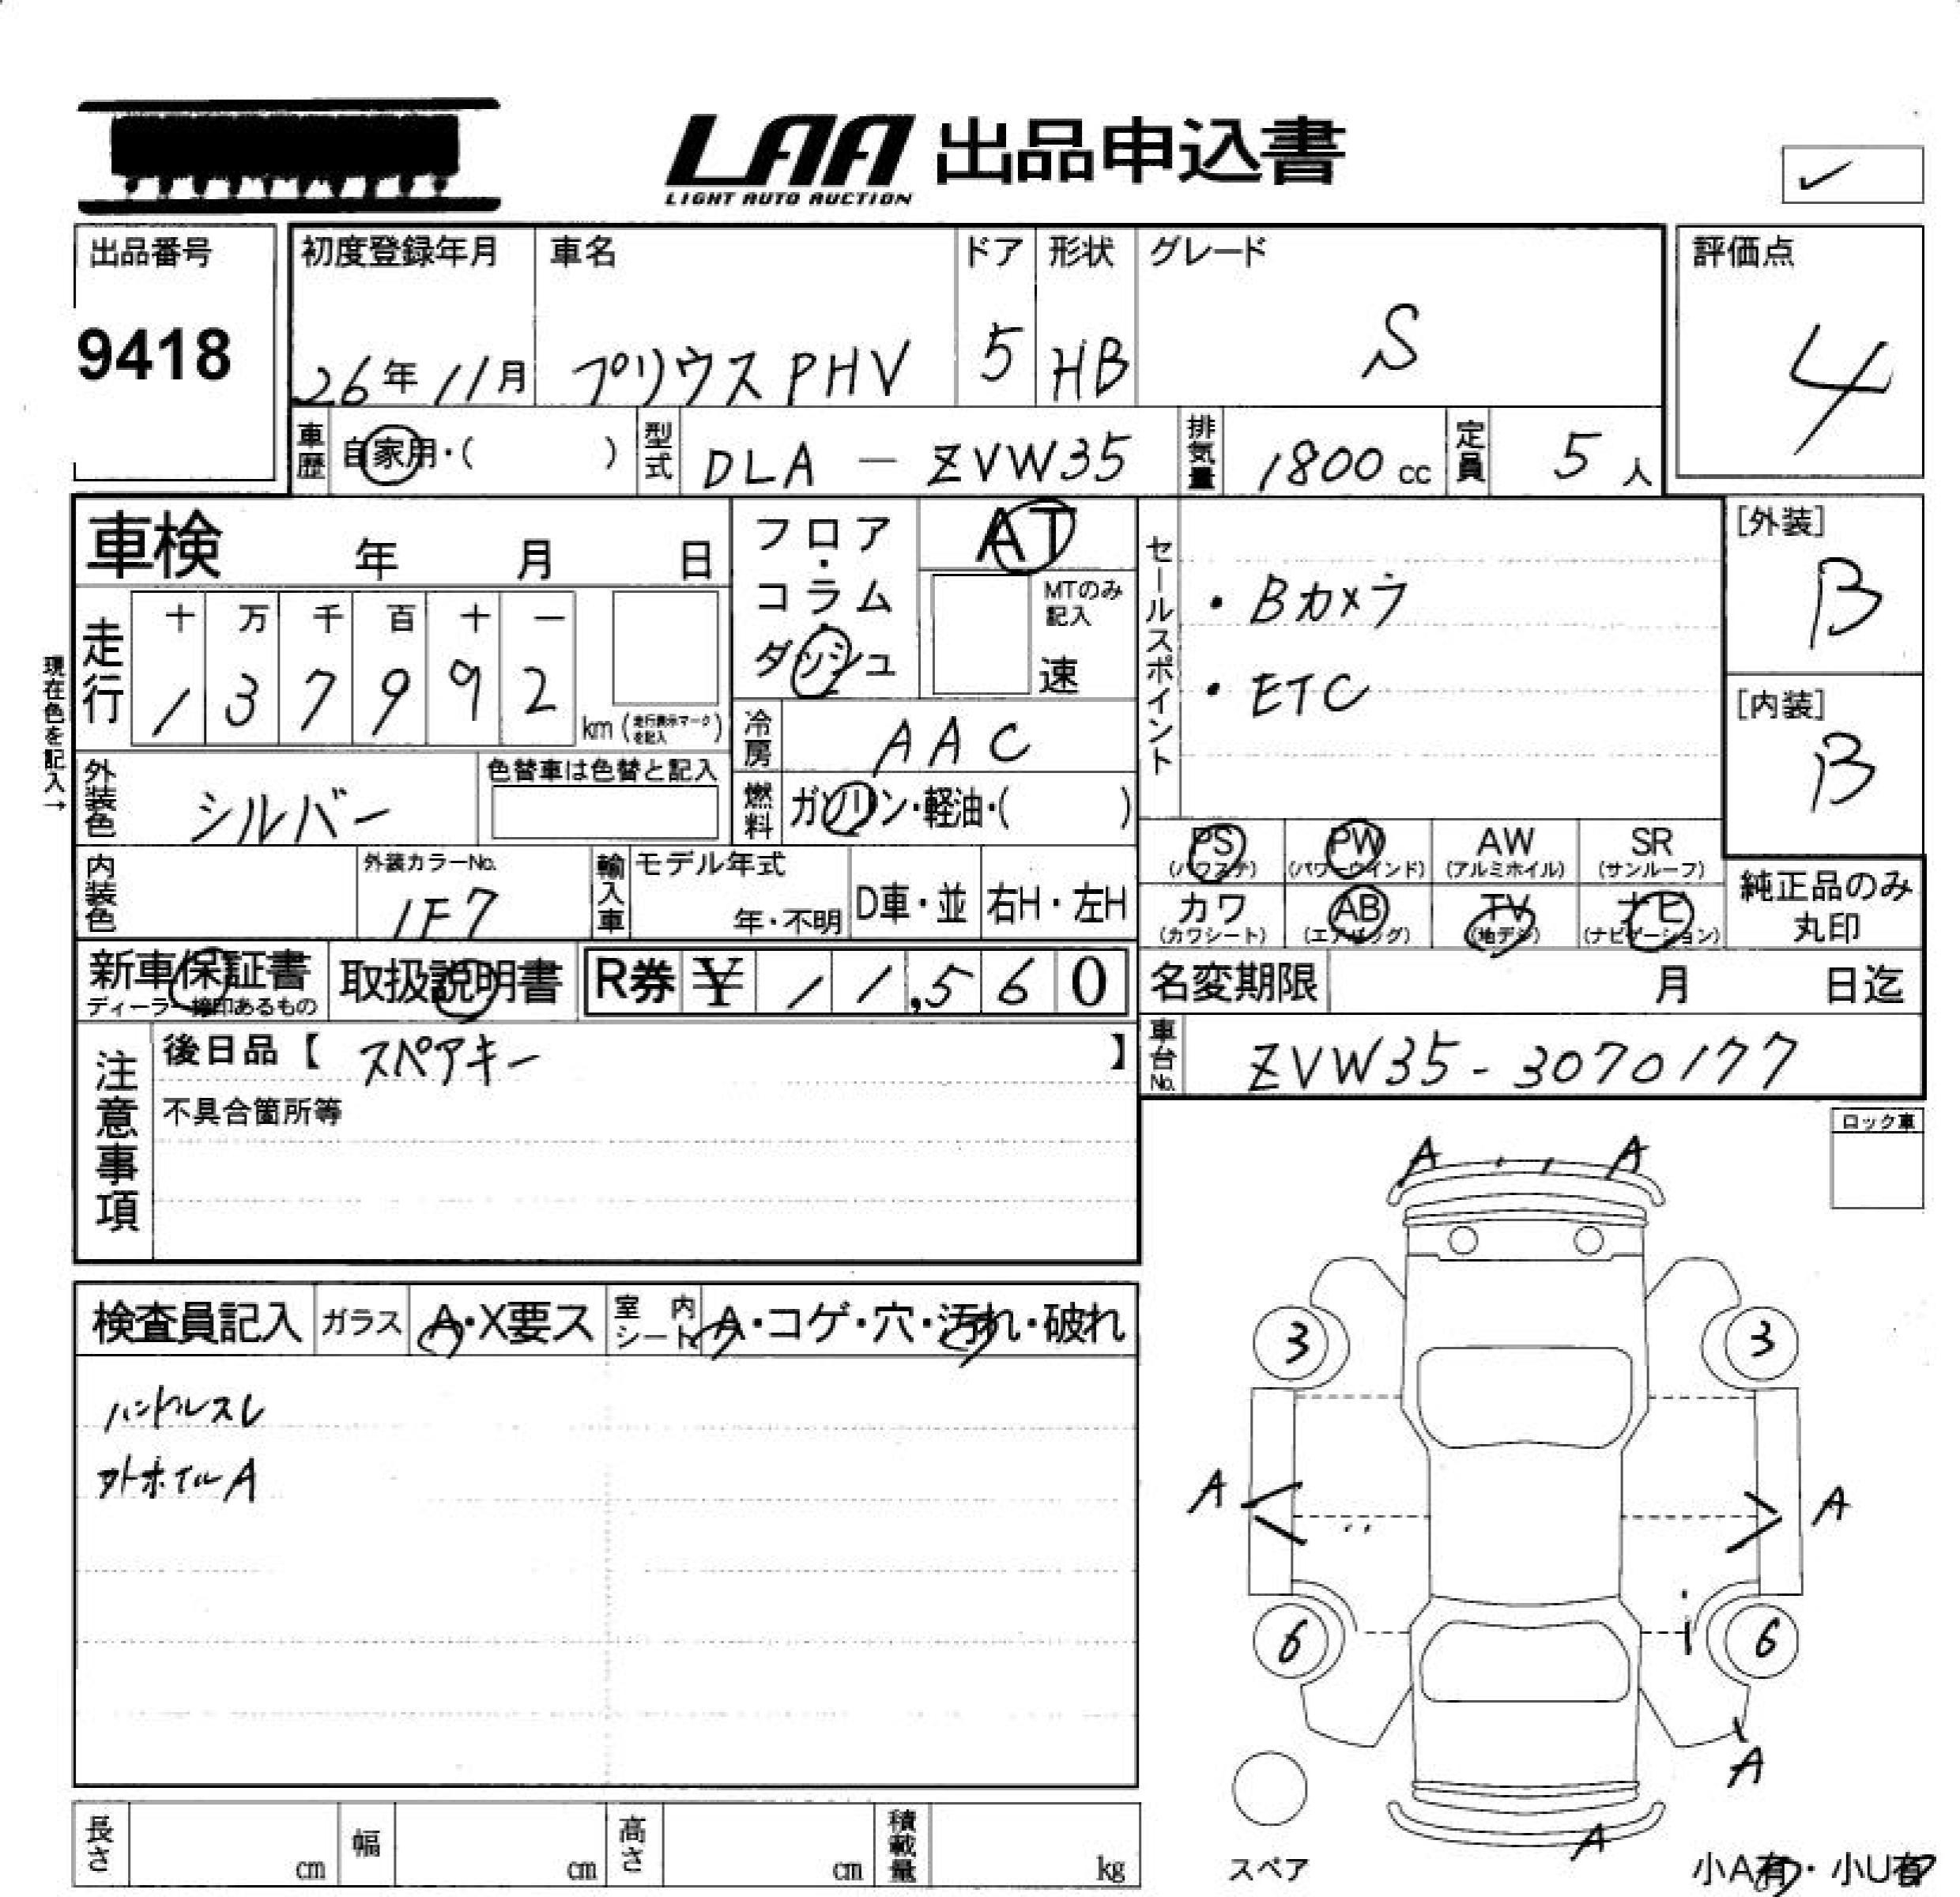 LAA 出品申込書
LIGHT AUTO AUCTION
出品番号
9418
初度登録年月
26年11月
車名
プリウスPHV
ドア
5
形状
HB
グレード
S
評価点
4
車歴
自家用・( )
型式
DLA - ZVW35
排気量
1800cc
定員
5人
車検 年 月 日
フロア・コラム・ダッシュ
AT
MTのみ記入
速
セールスポイント
・Bカメラ
・ETC
[外装]
B
[内装]
B
現在色を記入→
走行
十 万 千 百 十 一
1 3 7 9 9 2
km (走行表示マークを記入)
冷房
AAC
外装色
シルバー
色替車は色替と記入
燃料
ガソリン・軽油・( )
PS
(パワステ)
PW
(パワーウインド)
AW
(アルミホイル)
SR
(サンルーフ)
カワ
(カワシート)
AB
(エアバッグ)
TV
(地デジ)
ナビ
(ナビゲーション)
純正品のみ
丸印
内装色
外装カラーNo.
1F7
輸入車
モデル年式
年・不明
D車・並
右H・左H
新車保証書
ディーラー捺印あるもの
取扱説明書
R券 ¥ 11,560
名変期限 月 日迄
注意事項
後日品【 スペアキー 】
不具合箇所等
車台No.
ZVW35-3070177
ロック車
検査員記入
ガラス
A・X要ス
室内シート
A・コゲ・穴・汚れ・破れ
ハンドルスレ
外ホイルA
A A
3 3
A A
6 6
A
A
スペア
小A有・小U有
長さ cm
幅 cm
高さ cm
積載量 kg